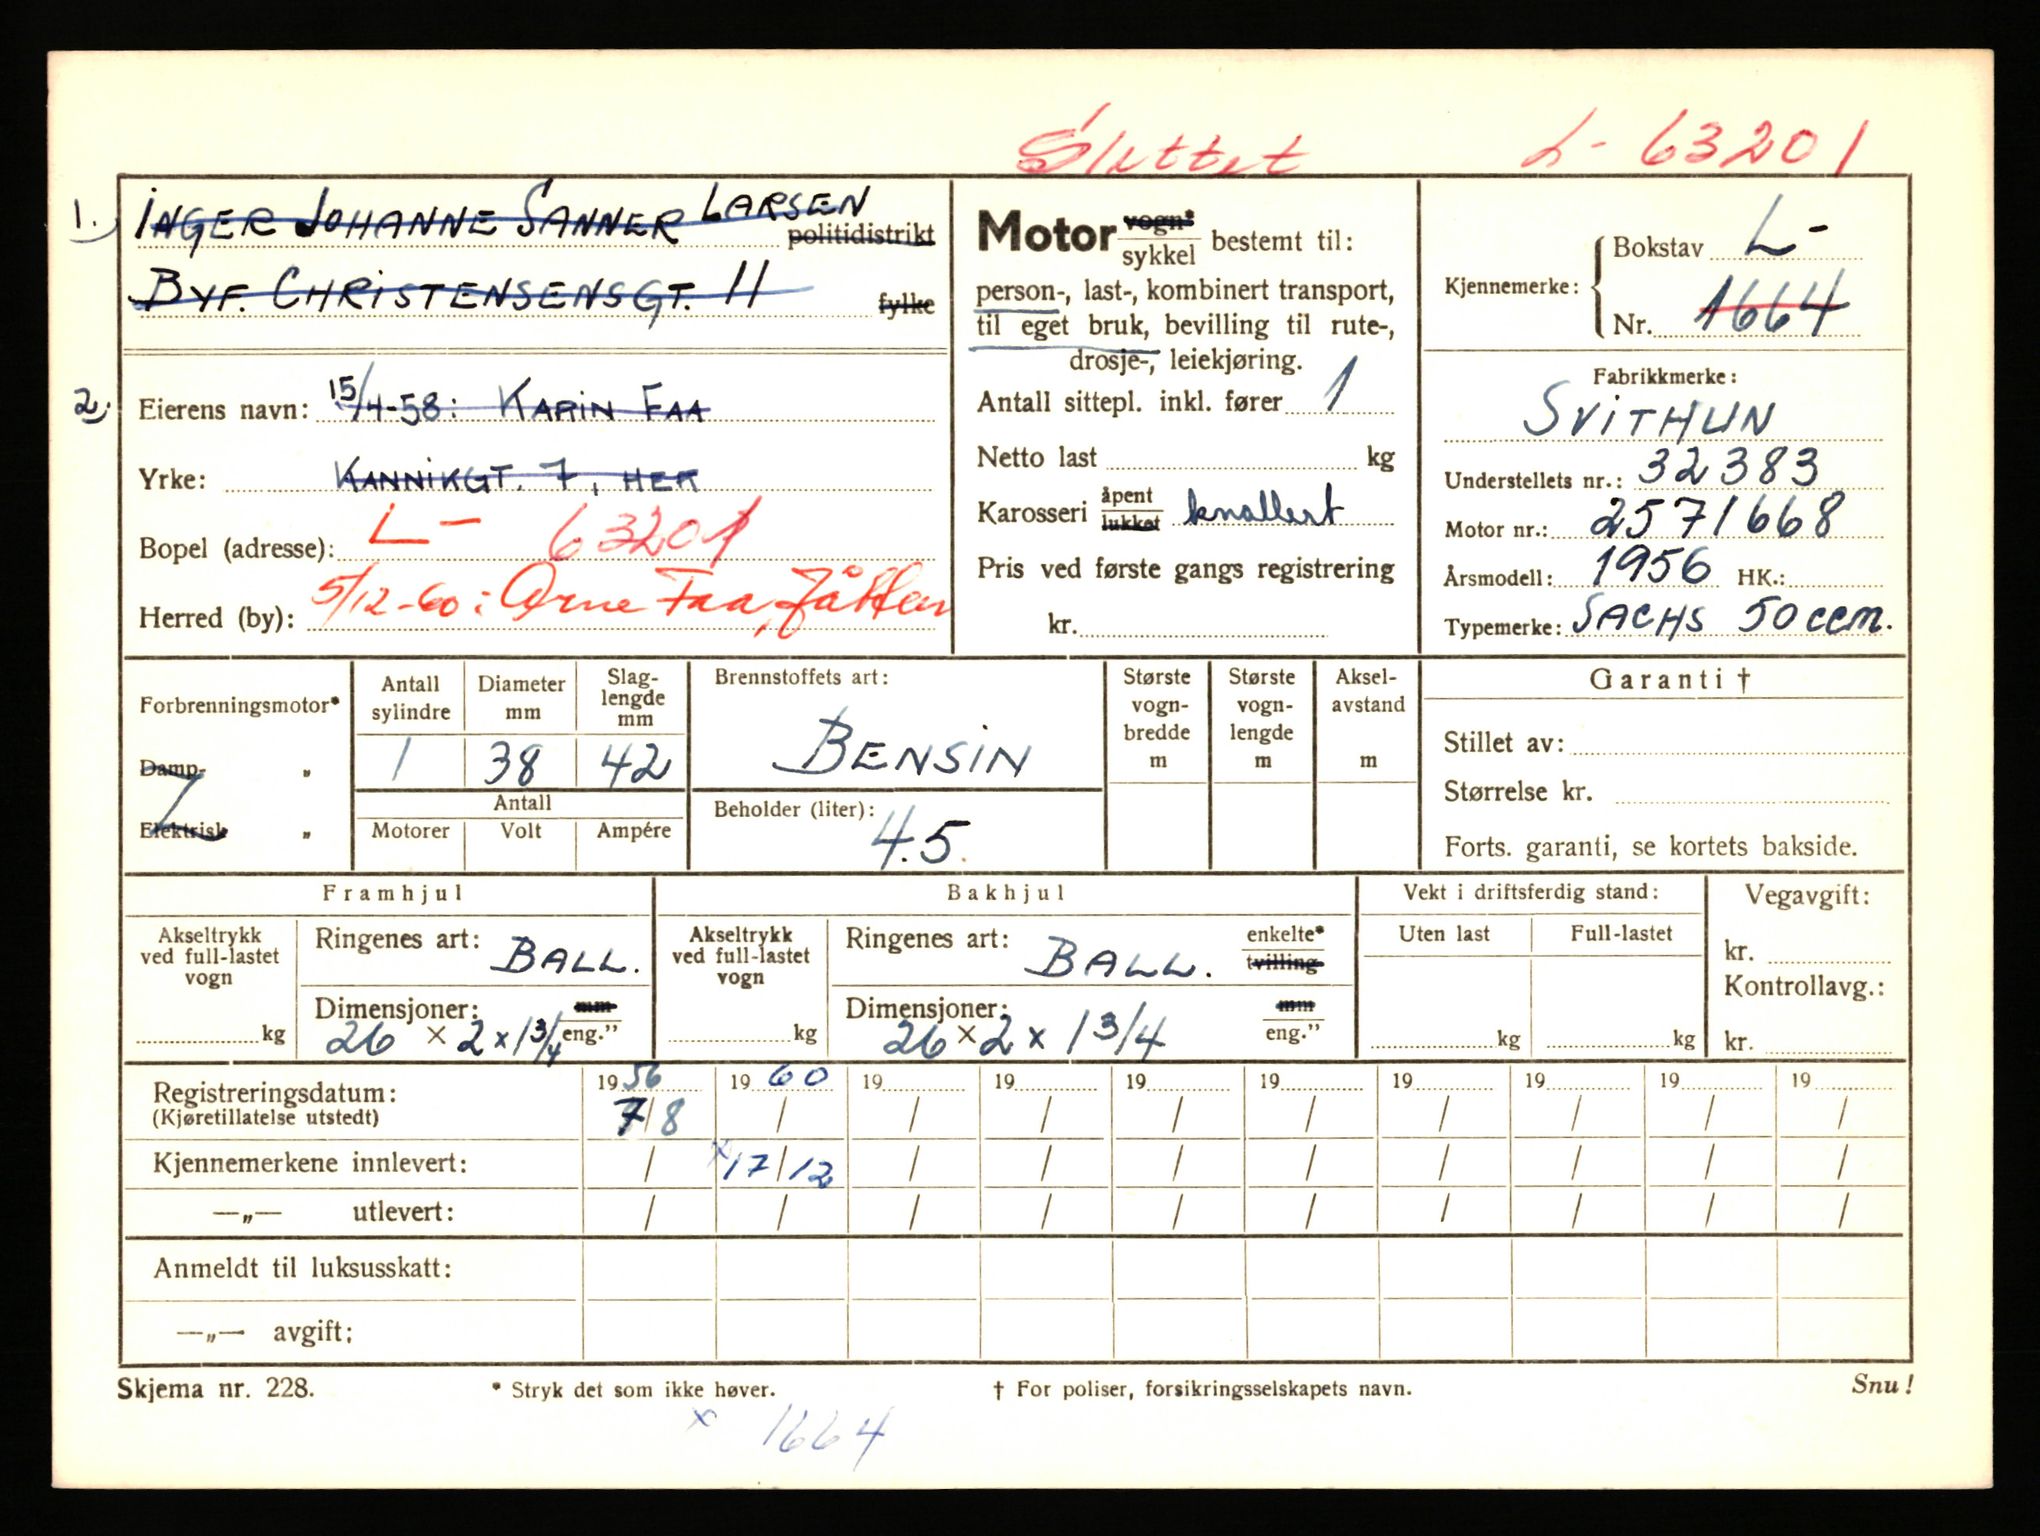 Slettet L- 63201
1. INGER JOHANNE SANNER LARSEN politidistrikt
BYF. CHRISTENSENSGT. 11 fylke
2. Eierens navn: 15/4-58: KARIN FAA
Yrke: KANNIKGT. 7, HER
Bopel (adresse): L- 63201
Herred (by): 5/12-60: Arne Faa, Jåtten
Motor vogn* sykkel bestemt til:
person-, last-, kombinert transport,
til eget bruk, bevilling til rute-,
drosje-, leiekjøring.
Antall sittepl. inkl. fører 1
Netto last kg
Karosseri åpent lukket knallert
Pris ved første gangs registrering
kr.
Kjennemerke: Bokstav L-
Nr. 1664
Fabrikkmerke:
SVITHUN
Understellets nr.: 32383
Motor nr.: 2571668
Årsmodell: 1956 HK.:
Typemerke: SACHS 50 ccm.
Forbrenningsmotor*
Damp- „
Elektrisk „
Antall sylindre
Diameter mm
Slag-lengde mm
1 38 42
Antall
Motorer Volt Ampére
Brennstoffets art:
BENSIN
Beholder (liter):
4.5
Største vogn-bredde m
Største vogn-lengde m
Aksel-avstand m
Garanti †
Stillet av:
Størrelse kr.
Forts. garanti, se kortets bakside.
Framhjul
Akseltrykk ved full-lastet vogn
kg
Ringenes art: BALL.
Dimensjoner: mm
26 x 2 x 1 3/4 eng."
Bakhjul
Akseltrykk ved full-lastet vogn
kg
Ringenes art: BALL. enkelte* tvilling
Dimensjoner: mm
26 x 2 x 1 3/4 eng."
Vekt i driftsferdig stand:
Uten last Full-lastet
kg kg
Vegavgift:
kr.
Kontrollavg.:
kr.
Registreringsdatum: 19 56 19 60 19 19 19 19 19 19 19 19
(Kjøretillatelse utstedt) 7/8 / / / / / / / / /
Kjennemerkene innlevert: / x 17/12 / / / / / / / /
—„— utlevert: / / / / / / / / / /
Anmeldt til luksusskatt:
—„— avgift:
Skjema nr. 228. * Stryk det som ikke høver. † For poliser, forsikringsselskapets navn. Snu!
x 1664